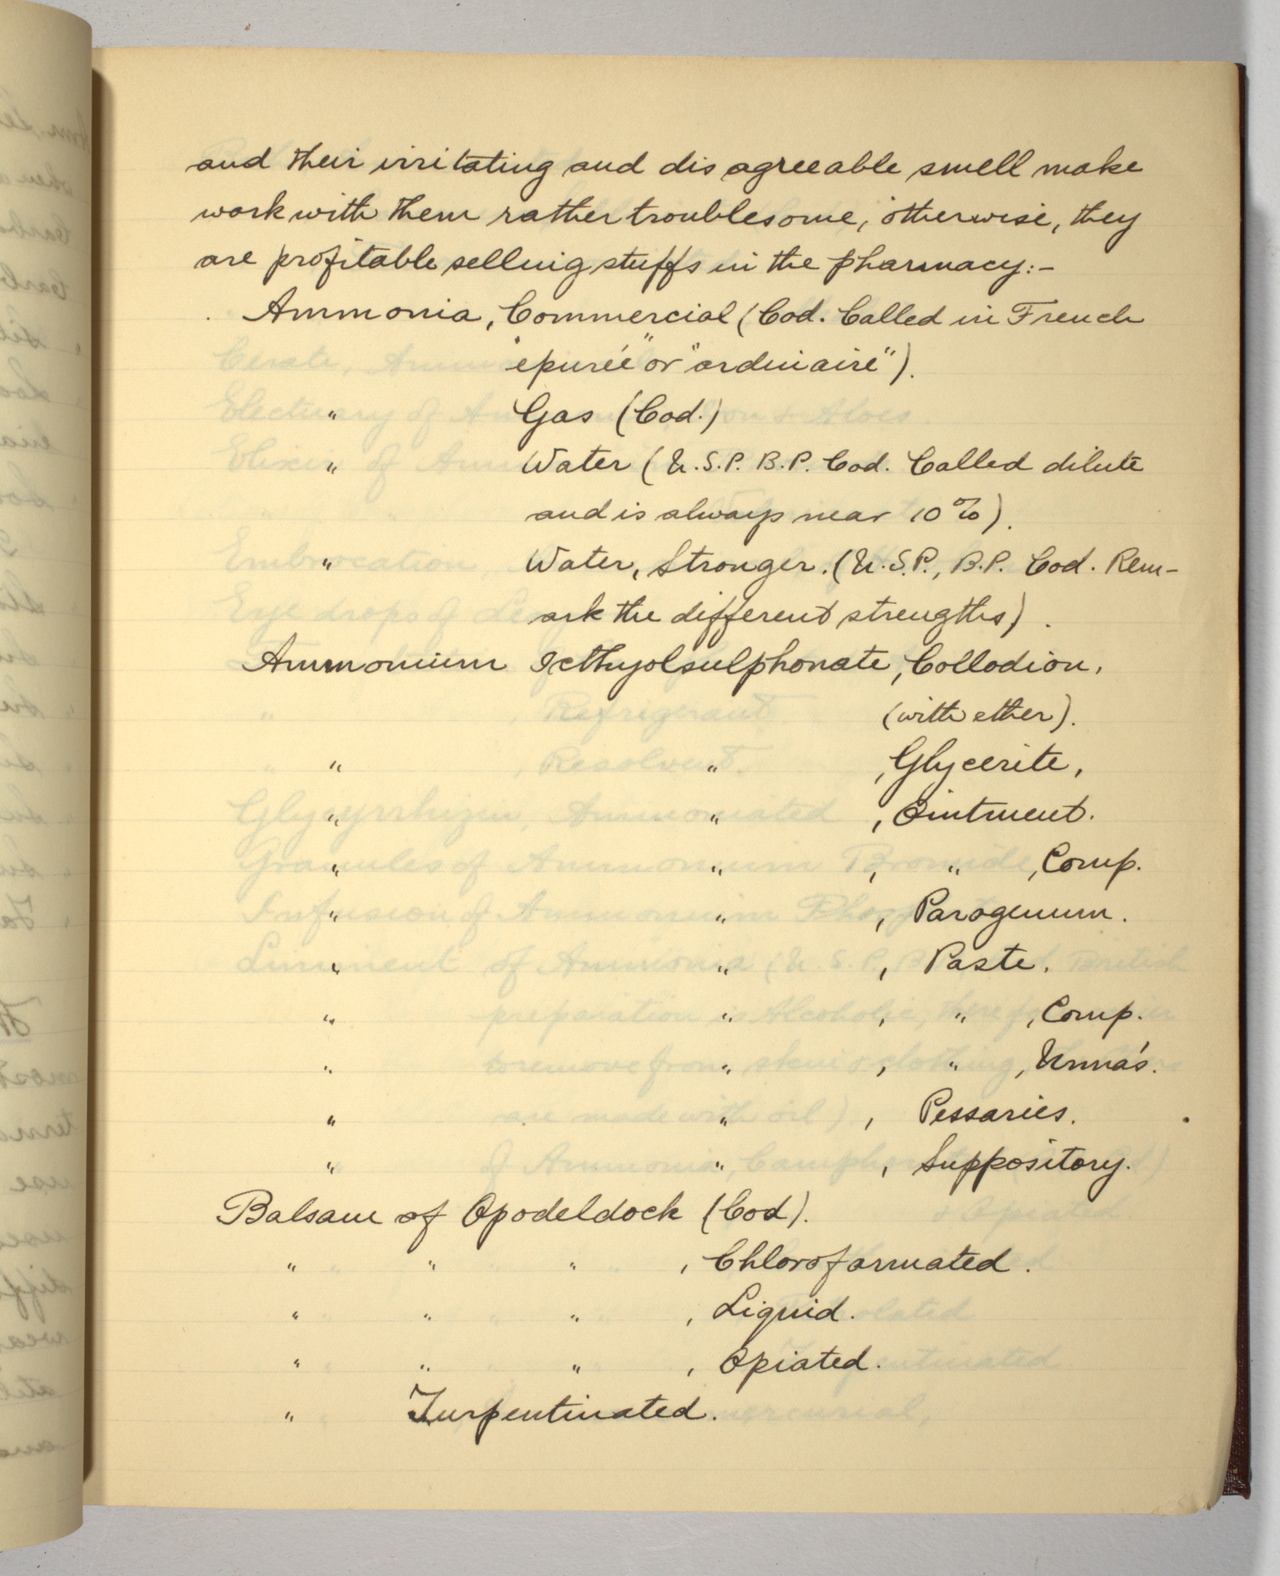 and their irritating and dis agreeable smell make
work with them rather troublesome, otherwise, they
are profitable selling stuffs in the pharmacy:-
Ammonia, Commercial (Cod. Called in French
"epurée" or "ordinaire").
" Gas (Cod.)
" Water (U.S.P. B.P. Cod. Called dilute
and is always near 10%).
" Water, Stronger. (U.S.P., B.P. Cod. Rem-
ark the different strengths).
Ammonium Icthyolsulphonate, Collodion,
(with ether).
" " , Glycerite,
" " , Ointment.
" " , " , Comp.
" " , Parogenum.
" " , Paste.
" " , " , Comp.
" " , " , Unna's.
" " , Pessaries.
" " , Suppository.
Balsam of Opodeldock (Cod).
" " " , Chloroformated.
" " " , Liquid.
" " " , Opiated.
" Turpentinated.